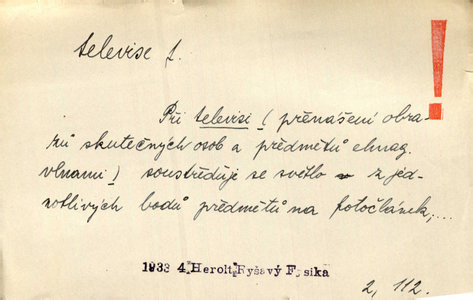 televise f.
!
Při televisi (přenášení obra-
zů skutečných osob a předmětů elmag.
vlnami) soustřeďuje se světlo z jed-
notlivých bodů předmětů na fotočlánek;...
1933 4 Herolt Ryšavý Fysika
2, 112.